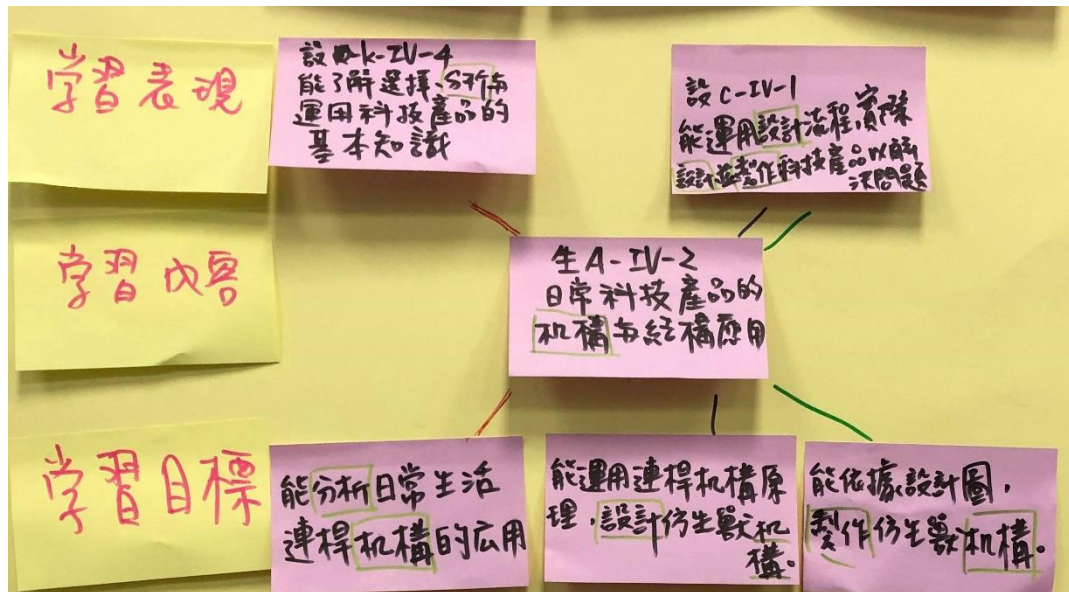 学習表現
設k-IV-4
能了解選擇、分析
運用科技產品的
基本知識
設c-IV-1
能運用設計流程,實際
設計並製作科技產品以解
決問題
学習內容
生A-IV-2
日常科技產品的
机構与結構應用
学習目標
能分析日常生活
連桿机構的広用
能運用連桿机構原
理,設計仿生獸机
構。
能依據設計圖,
製作仿生獸机構。